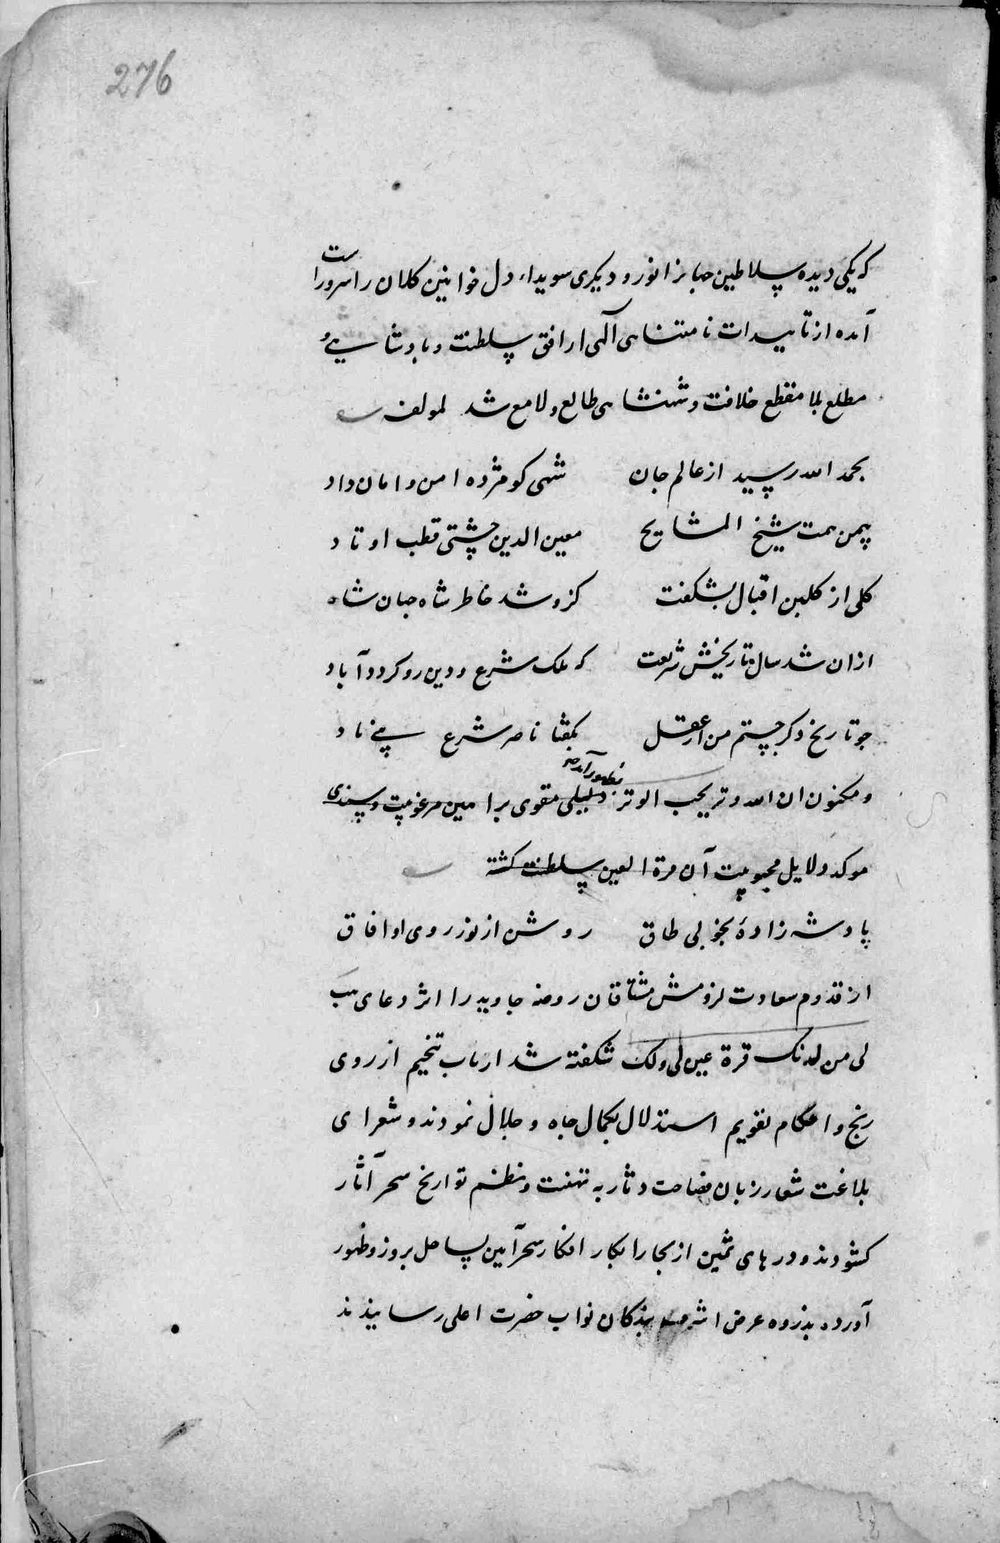 276
که یکی دیده سلاطین جهانرا نور و دیکری سویداء دل خوانین کلان را سرورست
آمده از تاییدات نامتناهی آلهی از افق سلطنت و بادشاهی
مطلع بلا مقطع خلافت و شهنشاهی طالع و لامع شد لمولفه
بحمد الله رسید از عالم جان شهی کو مژده امن و امان داد
بیمن همت شیخ المشایخ معین الدین چشتی قطب اوتاد
کلی از کلبن اقبال بشکفت کزو شد خاطر شاه جهان شاد
ازان شد سال تاریخش شریعت که ملک شرع و دین رو کرد و آباد
چو تاریخ دکر جستم من از عقل بکفتا ناصر شرع نبی زاد
و مکنون ان الله وتر یحب الوتر بظهور آمده دلیلی مقوی برا مین مرغوبیت و پسندی
موکد دلایل محبوبیت آن قرة العین سلطنت کشته
پادشه زادهٔ بخوبی طاق روشن از نور روی او افاق
از قدوم سعادت لزومش مشتاقان روضه جاوید را اثر دعای هب
لی من لدنک قرة عین لی ولک شکفته شد ارباب تنجیم از روی
زیج و احکام تقویم استدلال بکمال جاه و جلال نمودند و شعرای
بلاغت شعار زبان فصاحت دثار به تهنیت و نظم تواریخ سحر آثار
کشودند و درهای ثمین از بحار ابکار افکار سحر آیین بساحل بروز و ظهور
آورده بذروه عرض اشرف بندکان نواب حضرت اعلی رسانیدند